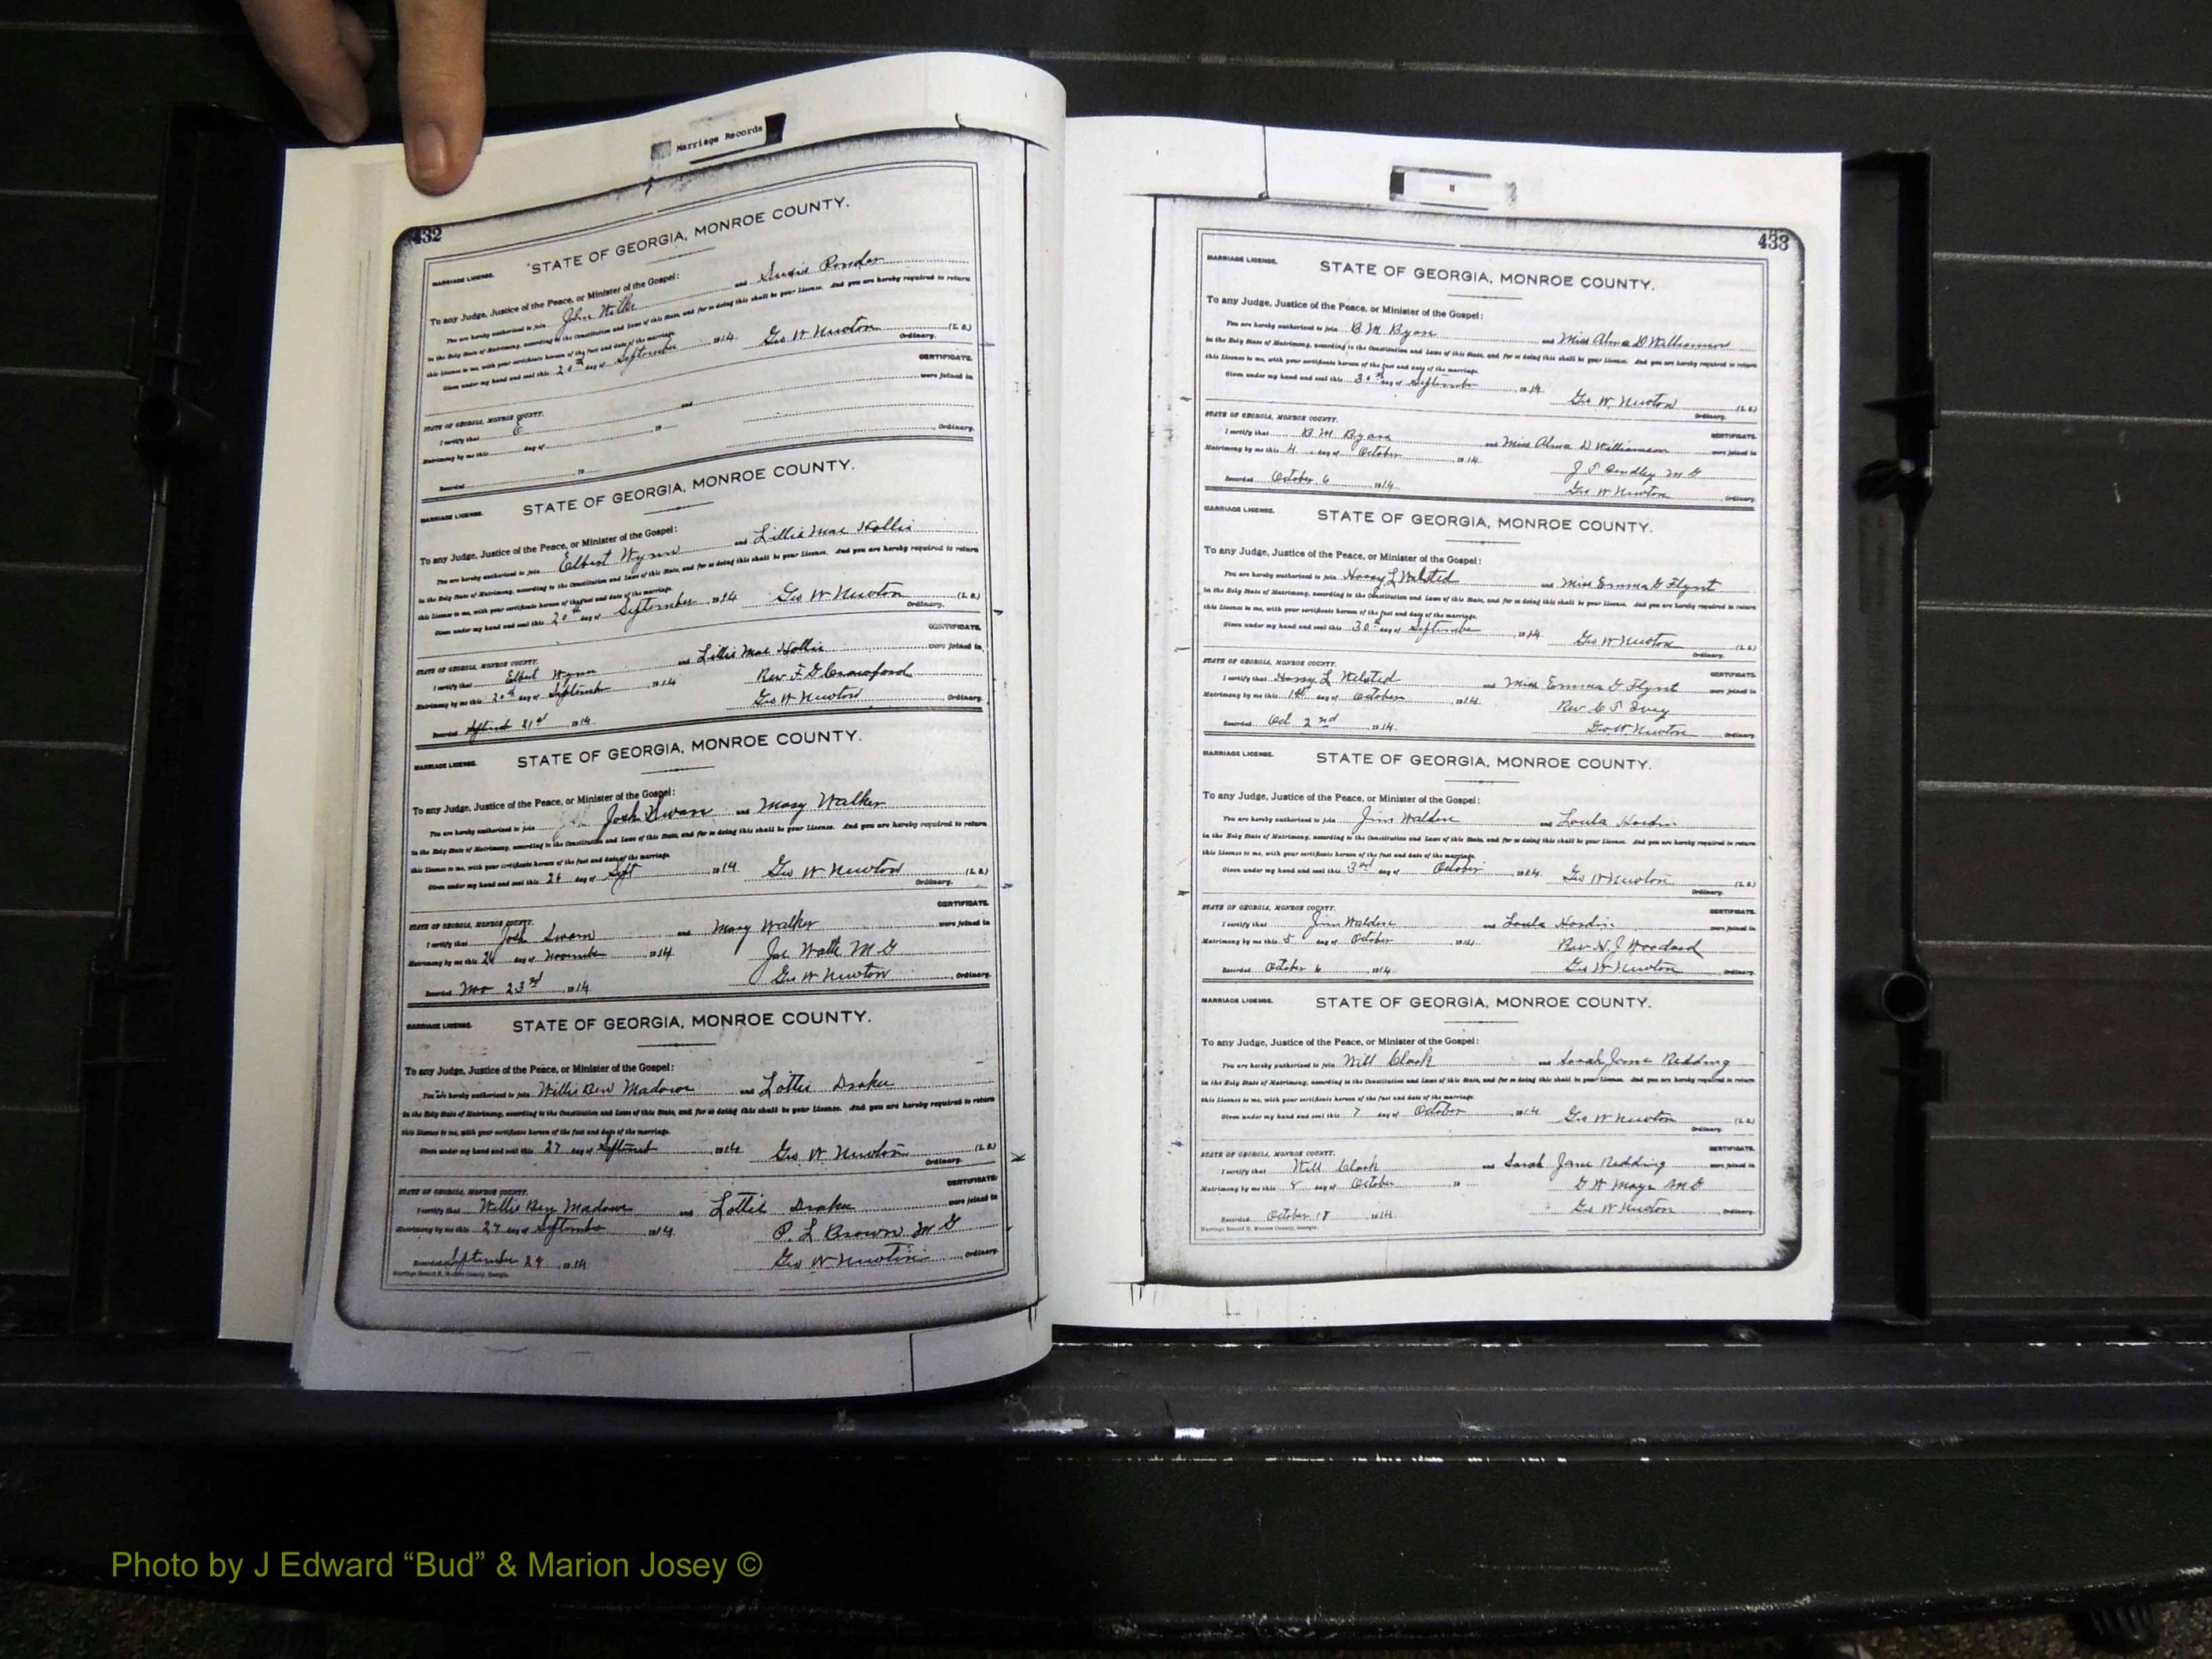 Marriage Records
432
STATE OF GEORGIA, MONROE COUNTY.
MARRIAGE LICENSE.
To any Judge, Justice of the Peace, or Minister of the Gospel:
You are hereby authorized to join John and Susie Ponder
in the Holy State of Matrimony, according to the Constitution and Laws of this State, and for so doing this shall be your License. And you are hereby required to return
this License to me, with your certificate hereon of the fact and date of the marriage.
Given under my hand and seal this 20th day of September 1914 Geo W Newton (L. S.)
Ordinary.
CERTIFICATE.
STATE OF GEORGIA, MONROE COUNTY.
I certify that and were joined in
Matrimony by me this day of 19
Recorded 19 Ordinary.
STATE OF GEORGIA, MONROE COUNTY.
MARRIAGE LICENSE.
To any Judge, Justice of the Peace, or Minister of the Gospel:
You are hereby authorized to join Elbert Wynn and Lillie Mae Hollis
in the Holy State of Matrimony, according to the Constitution and Laws of this State, and for so doing this shall be your License. And you are hereby required to return
this License to me, with your certificate hereon of the fact and date of the marriage.
Given under my hand and seal this 20th day of September 1914 Geo W Newton (L. S.)
Ordinary.
CERTIFICATE.
STATE OF GEORGIA, MONROE COUNTY.
I certify that Elbert Wynn and Lillie Mae Hollis were joined in
Matrimony by me this 20th day of September 1914 Rev F G Crawford
Geo W Newton, Ordinary.
Recorded 21st 1914
STATE OF GEORGIA, MONROE COUNTY.
MARRIAGE LICENSE.
To any Judge, Justice of the Peace, or Minister of the Gospel:
You are hereby authorized to join Josh Swann and Mary Walker
in the Holy State of Matrimony, according to the Constitution and Laws of this State, and for so doing this shall be your License. And you are hereby required to return
this License to me, with your certificate hereon of the fact and date of the marriage.
Given under my hand and seal this 26 day of Sept 1914 Geo W Newton (L. S.)
Ordinary.
CERTIFICATE.
STATE OF GEORGIA, MONROE COUNTY.
I certify that Josh Swann and Mary Walker were joined in
Matrimony by me this day of 1914 M G
Geo W Newton, Ordinary.
Recorded Nov 23rd 1914
MARRIAGE LICENSE.
STATE OF GEORGIA, MONROE COUNTY.
To any Judge, Justice of the Peace, or Minister of the Gospel:
You are hereby authorized to join Willis Ben and Lottie Drake
in the Holy State of Matrimony, according to the Constitution and Laws of this State, and for so doing this shall be your License. And you are hereby required to return
this License to me, with your certificate hereon of the fact and date of the marriage.
Given under my hand and seal this 27 day of 1914 Geo W Newton (L. S.)
Ordinary.
CERTIFICATE.
STATE OF GEORGIA, MONROE COUNTY.
I certify that Willis Ben and Lottie Drake were joined in
Matrimony by me this 27 day of September 1914 P. L Brown M G
Geo W Newton, Ordinary.
Recorded September 29 1914
Marriage Record H, Monroe County, Georgia.
433
MARRIAGE LICENSE.
STATE OF GEORGIA, MONROE COUNTY.
To any Judge, Justice of the Peace, or Minister of the Gospel:
You are hereby authorized to join B M Byars and Miss Alma D Williamson
in the Holy State of Matrimony, according to the Constitution and Laws of this State, and for so doing this shall be your License. And you are hereby required to return
this License to me, with your certificate hereon of the fact and date of the marriage.
Given under my hand and seal this 30th day of September 1914
Geo W. Newton (L. S.)
Ordinary.
STATE OF GEORGIA, MONROE COUNTY.
CERTIFICATE.
I certify that B M Byars and Miss Alma D Williamson were joined in
Matrimony by me this 4 day of October 1914
J S M G
Recorded October 6 1914 Geo W Newton, Ordinary.
MARRIAGE LICENSE.
STATE OF GEORGIA, MONROE COUNTY.
To any Judge, Justice of the Peace, or Minister of the Gospel:
You are hereby authorized to join Harry L Welsted and Miss Emma G Flynt
in the Holy State of Matrimony, according to the Constitution and Laws of this State, and for so doing this shall be your License. And you are hereby required to return
this License to me, with your certificate hereon of the fact and date of the marriage.
Given under my hand and seal this 30th day of September 1914
Geo W Newton (L. S.)
Ordinary.
STATE OF GEORGIA, MONROE COUNTY.
CERTIFICATE.
I certify that Harry L Welsted and Miss Emma G Flynt were joined in
Matrimony by me this 1st day of October 1914
Rev
Recorded Oct 2nd 1914 Geo W. Newton Ordinary.
MARRIAGE LICENSE.
STATE OF GEORGIA, MONROE COUNTY.
To any Judge, Justice of the Peace, or Minister of the Gospel:
You are hereby authorized to join Jim and Loula Hardin
in the Holy State of Matrimony, according to the Constitution and Laws of this State, and for so doing this shall be your License. And you are hereby required to return
this License to me, with your certificate hereon of the fact and date of the marriage.
Given under my hand and seal this 3rd day of October 1914 Geo W Newton (L. S.)
Ordinary.
STATE OF GEORGIA, MONROE COUNTY.
CERTIFICATE.
I certify that Jim and Loula Hardin were joined in
Matrimony by me this 5 day of October 1914 Rev N. J Woodard
Recorded October 6 1914 Geo W Newton Ordinary.
MARRIAGE LICENSE.
STATE OF GEORGIA, MONROE COUNTY.
To any Judge, Justice of the Peace, or Minister of the Gospel:
You are hereby authorized to join Will Clark and Sarah Jane Redding
in the Holy State of Matrimony, according to the Constitution and Laws of this State, and for so doing this shall be your License. And you are hereby required to return
this License to me, with your certificate hereon of the fact and date of the marriage.
Given under my hand and seal this 7 day of October 1914 Geo W Newton (L. S.)
Ordinary.
STATE OF GEORGIA, MONROE COUNTY.
CERTIFICATE.
I certify that Will Clark and Sarah Jane Redding were joined in
Matrimony by me this 8 day of October 19 G W Mays M G
Recorded October 18 1914 Geo W Newton Ordinary.
Marriage Record H, Monroe County, Georgia.
Photo by J Edward “Bud” & Marion Josey ©